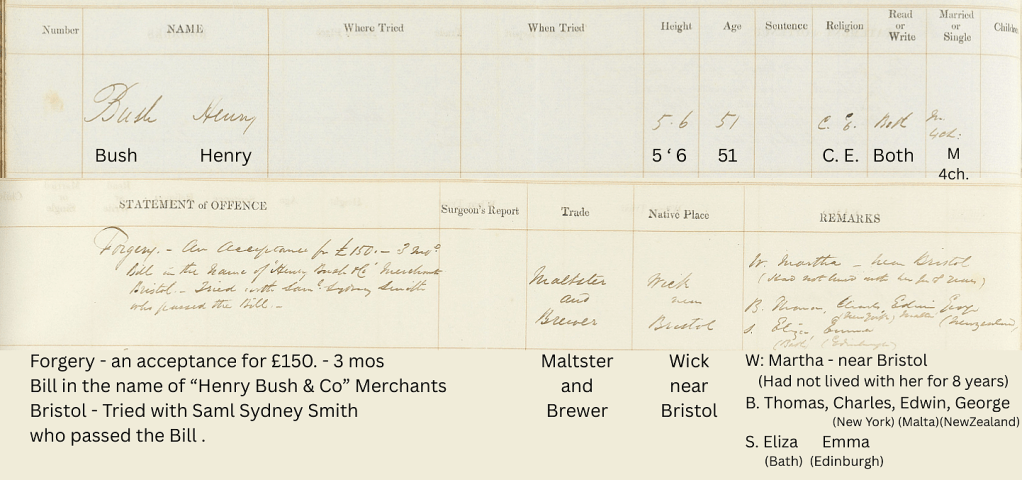 Number NAME Where Tried When Tried Height Age Sentence Religion Read or Write Married or Single Childre
Bush Henry 5.6 51 C. E. Both M.
4ch:
Bush Henry 5 ‘ 6 51 C. E. Both M
4ch.
STATEMENT of OFFENCE Surgeon's Report Trade Native Place REMARKS
Forgery. - An Acceptance for £150. - 3 mos
Bill in the Name of "Henry Bush & Co" Merchants
Bristol - Tried with Saml Sydney Smith
who passed the Bill -
Maltster
and
Brewer
Wick
near
Bristol
W. Martha - near Bristol
(Had not lived with her for 8 years)
B. Thomas, Charles, Edwin, George
(New York) Malta (New Zealand)
S. Eliza, Emma
(Bath) (Edinburgh)
Forgery - an acceptance for £150. - 3 mos
Bill in the name of “Henry Bush & Co” Merchants
Bristol - Tried with Saml Sydney Smith
who passed the Bill .
Maltster
and
Brewer
Wick
near
Bristol
W: Martha - near Bristol
(Had not lived with her for 8 years)
B. Thomas, Charles, Edwin, George
(New York) (Malta)(NewZealand)
S. Eliza Emma
(Bath) (Edinburgh)